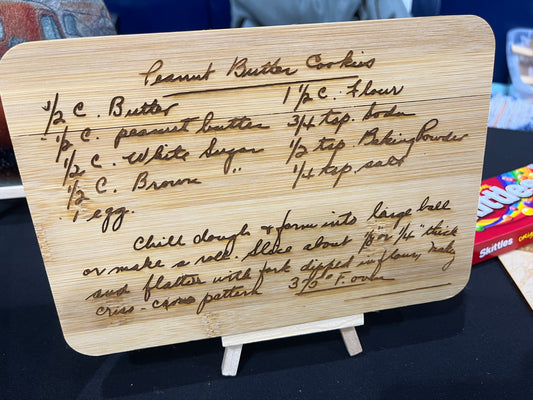 Peanut Butter Cookies
1/2 C. Butter
1/2 C. peanut butter
1/2 C. White Sugar
1/2 C. Brown "
1 egg.
1 1/2 C. Flour
3/4 tsp. Soda
1/2 tsp. Baking Powder
1/4 tsp. salt
Chill dough & form into large ball
or make a roll. Slice about or 1/4" thick
and flatten with fork dipped in flour, making
criss-cross pattern 375° F. oven
Skittles
Skittles